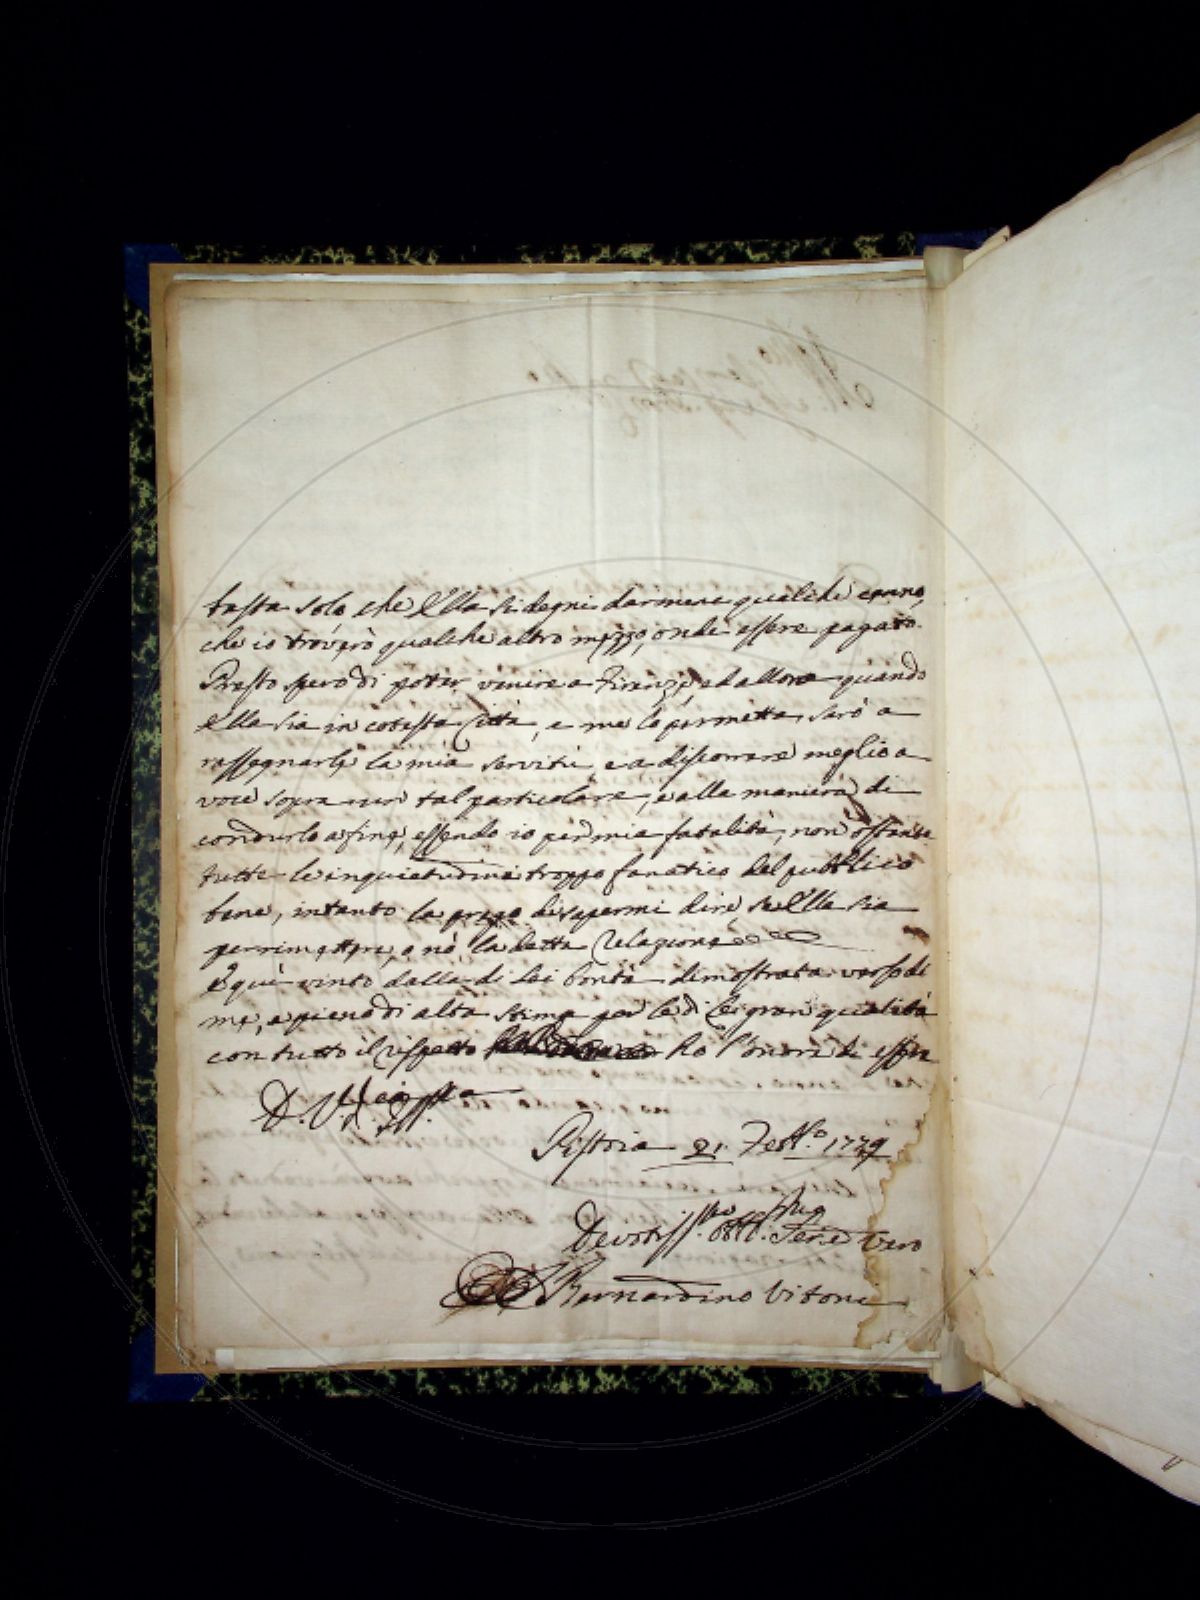 basta solo che Ella si degni darmene qualche cenno,
che io troverò qualche altro mezzo, onde essere pagato.
Presto spero di poter venire a Firenze, ed allora quando
Ella sia in cotesta Città, e me lo permetta, sarò a
rassegnarle la mia servitù, e a discorrere meglio a
voce sopra un tal particolare, e alla maniera di
condurlo a fine, essendo io per mia fatalità, non ostante
tutte le inquietudini troppo fanatico del pubblico
bene, intanto la prego di sapermi dire, se Ella sia
per rimettere, o nò, la detta Relazione
E quì vinto dalla di Lei bontà dimostrata verso di
me, e pieno di alta stima per le di Lei gran qualità
con tutto il rispetto ho l'onore di essere
D. V. S. Ill.
Pistoia 21. Febb.º 1779
Devotiss.mo Obb.mo Ser.e Vero
Bernardino Vitoni